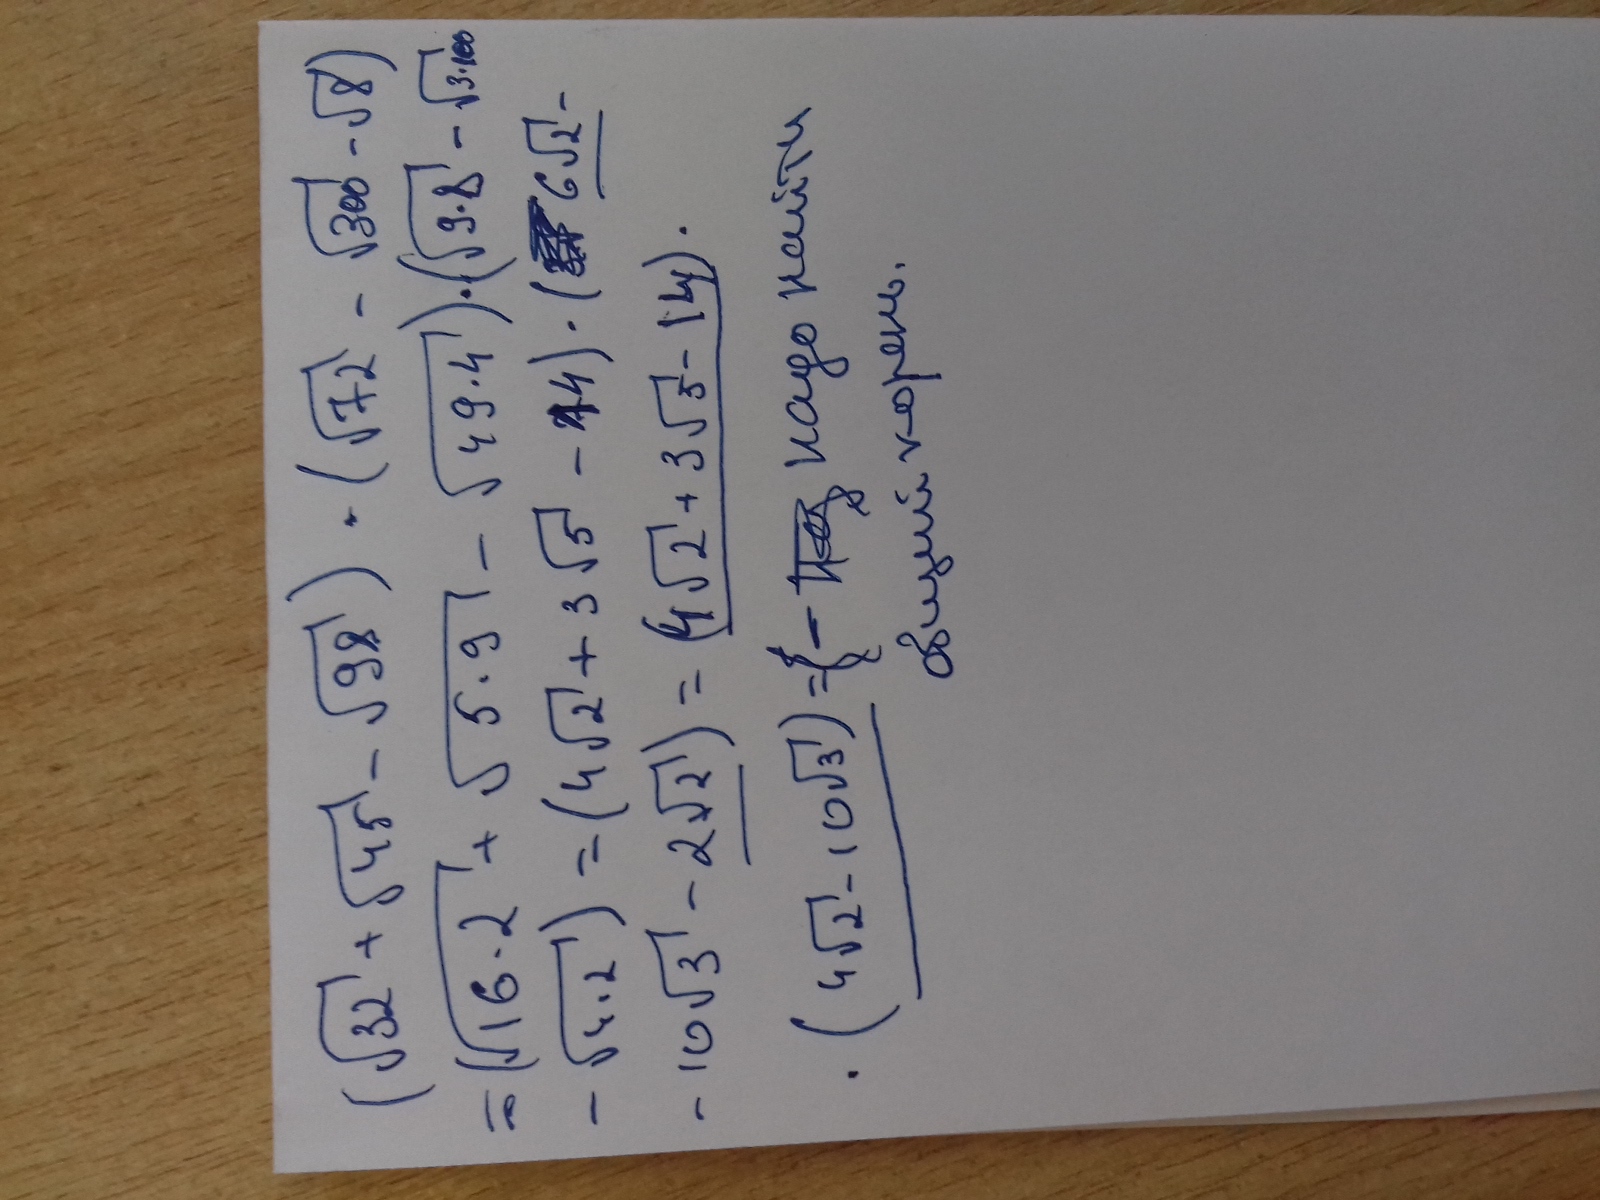 (√32 + √45 - √98) · (√72 - √300 - √8)
= (√16·2 + √5·9 - √49·4) · (√9·8 - √3·100
- √4·2) = (4√2 + 3√5 - 14) · (6√2 -
- 10√3 - 2√2) = (4√2 + 3√5 - 14) ·
· (4√2 - 10√3) = - надо найти
общий корень.